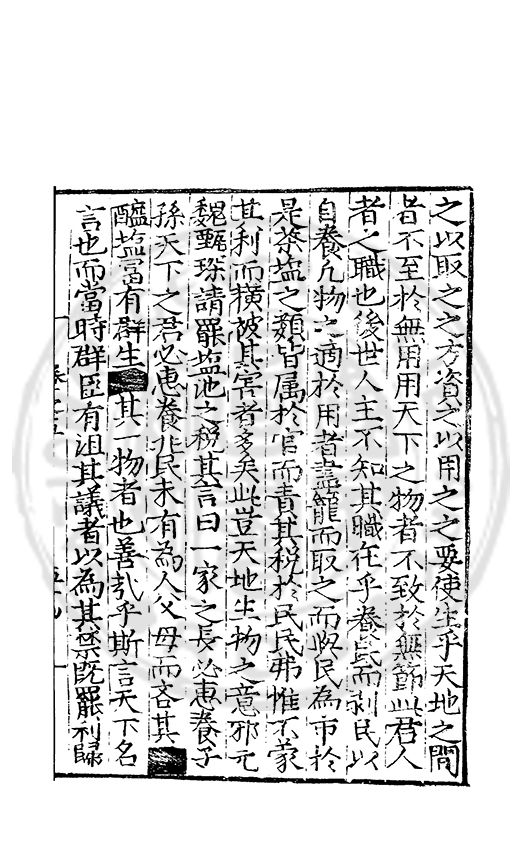 之以取之之方資之以用之之要使生乎天地之間
者不至於無用用天下之物者不致於無節此君人
者之職也後世人主不知其職在乎養民而剥民以
自養凡物之適於用者盡籠而取之而與民為市於
是茶塩之類皆属於官而責其税於民民弗惟不蒙
其利而横被其害者多矣此豈天地生物之意邪元
魏甄琛請罷塩池之税其言曰一家之長必惠養子
孫天下之君必惠養兆民未有為人父母而吝其
醯塩富有群生其一物者也善㢤乎斯言天下名
言也而當時群臣有沮其議者以為其禁既罷利歸